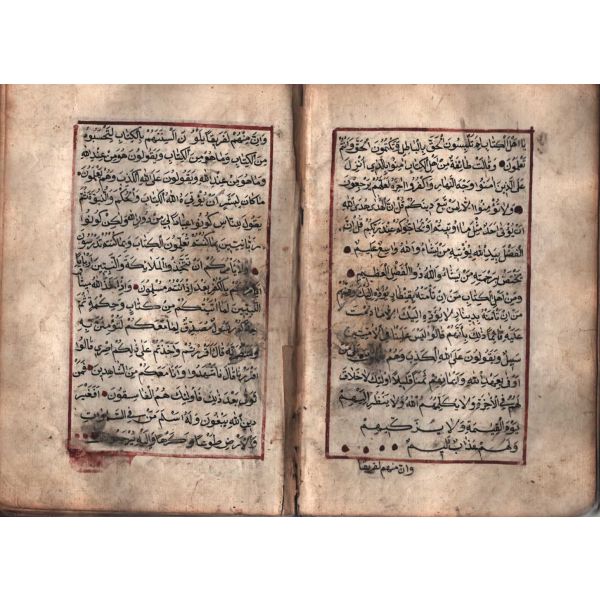 يا اهل الكتاب لم تلبسون الحق بالباطل وتكتمون الحق وانتم
تعلمون وقالت طائفة من اهل الكتاب امنوا بالذي انزل
على الذين امنوا وجه النهار واكفروا اخره لعلهم يرجعون
ولا تؤمنوا الا لمن تبع دينكم قل ان الهدى هدى الله
ان يؤتى احد مثل ما اوتيتم او يحاجوكم عند ربكم قل ان
الفضل بيد الله يؤتيه من يشاء والله واسع عليم
يختص برحمته من يشاء والله ذو الفضل العظيم
ومن اهل الكتاب من ان تأمنه بقنطار يؤده اليك
من ان تأمنه بدينار لا يؤده اليك الا ما دمت
عليه قائما ذلك بانهم قالوا ليس علينا في الاميين
سبيل ويقولون على الله الكذب وهم
بعهد الله وايمانهم ثمنا قليلا اولئك لا خلاق
لهم في الاخرة ولا يكلمهم الله ولا ينظر اليهم
يوم القيمة ولا يزكيهم
ولهم عذاب اليم
وان منهم لفريقا
وان منهم لفريقا يلون السنتهم بالكتاب لتحسبوه
من الكتاب وما هو من الكتاب ويقولون هو من عند الله
وما هو من عند الله ويقولون على الله الكذب وهم يعلمون
ما كان لبشر ان يؤتيه الله الكتاب والحكم والنبوة ثم
يقول للناس كونوا عبادا لي من دون الله ولكن كونوا
ربانيين بما كنتم تعلمون الكتاب وبما كنتم تدرسون
ولا يأمركم ان تتخذوا الملائكة والنبيين اربابا
بالكفر بعد اذ انتم مسلمون واذ اخذ الله ميثاق
النبيين لما اتيتكم من كتاب وحكمة ثم
رسول مصدق لما معكم لتؤمنن به
قال أاقررتم واخذتم على ذلكم اصري قالوا
اقررنا قال فاشهدوا وانا معكم من الشاهدين فمن
تولى بعد ذلك فاولئك هم الفاسقون افغير
دين الله يبغون وله اسلم من في السموات
والارض طوعا وكرها واليه يرجعون